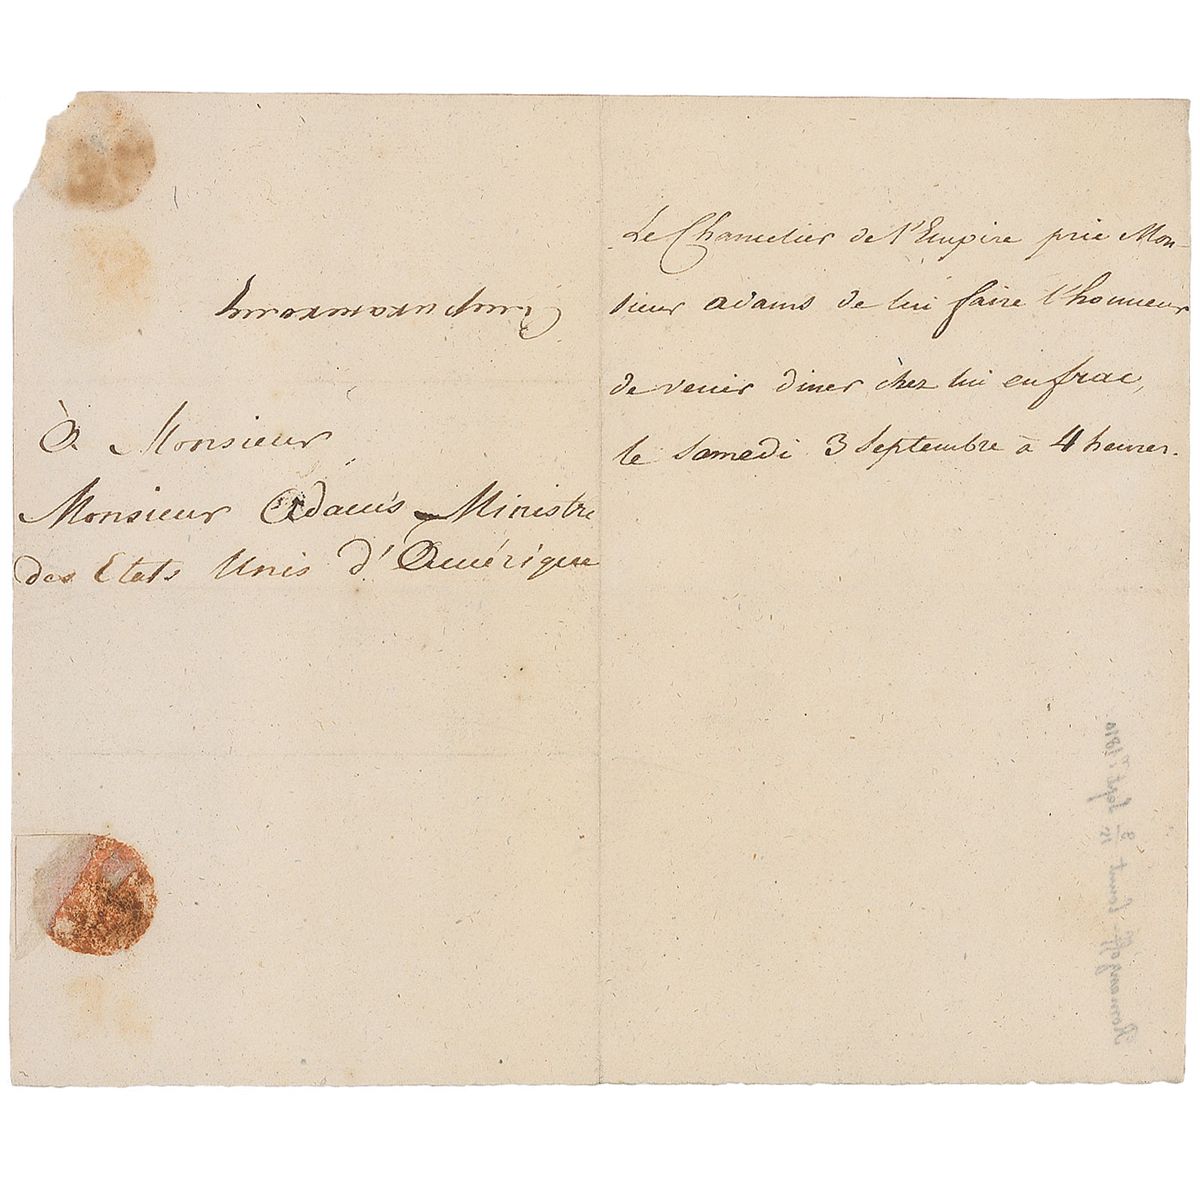 À Monsieur
Monsieur Adams Ministre
des Etats Unis d'Amérique
Le Chancelier de l'Empire prie Mon-
sieur Adams de lui faire l'honneur
de venir diner chez lui en frac,
le Samedi 3 Septembre à 4 heures.
Romanzoff. Count 8 Septr. 1810.